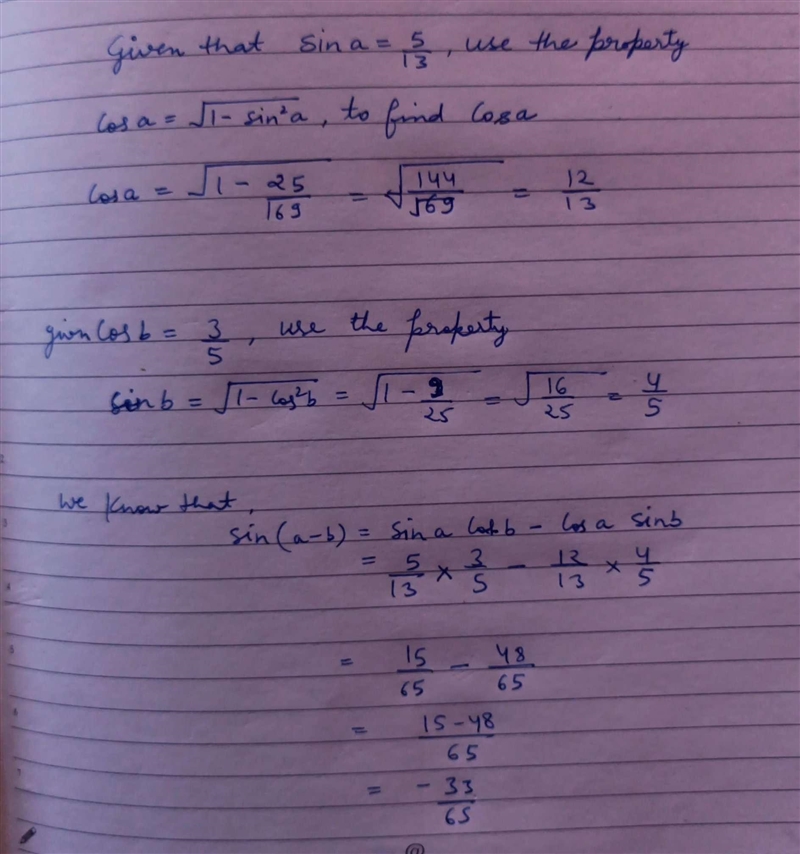 Given that sin a = 5/13, use the property
Cos a = √1 - sin²a, to find Cos a
Cos a = √1 - 25/169 = √144/169 = 12/13
given Cos b = 3/5, use the property
sin b = √1 - Cos²b = √1 - 9/25 = √16/25 = 4/5
We know that,
sin(a-b) = sin a cos b - Cos a sin b
= 5/13 × 3/5 - 12/13 × 4/5
= 15/65 - 48/65
= 15-48/65
= - 33/65